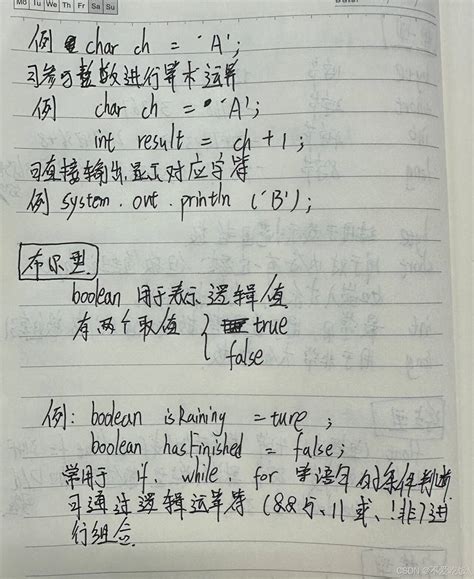 Mo Tu We Th Fr Sa Su
例 char ch = 'A';
可参与整数进行算术运算
例 char ch = 'A';
int result = ch + 1;
可直接输出,显示对应字符
例 system.out.println ('B');
布尔型
boolean 用于表示逻辑值
有两个取值 { true
false
例: boolean isRaining = ture ;
boolean hasFinished = false;
常用于 if、while、for 语句的条件判断
可通过逻辑运算符 (&&与、||或、!非) 进
行组合
CSDN @不爱吃饭